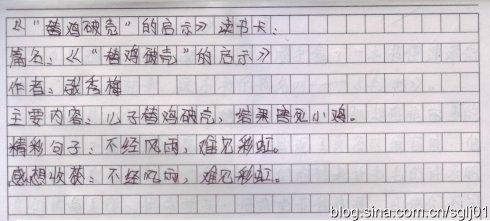 《“替鸡破壳”的启示》读书卡：
篇名：《“替鸡破壳”的启示》
作者：张秀梅
主要内容：儿子替鸡破壳，结果害死小鸡。
精彩句子：不经风雨，难见彩虹。
感想收获：不经风雨，难见彩虹。
blog.sina.com.cn/sglj01